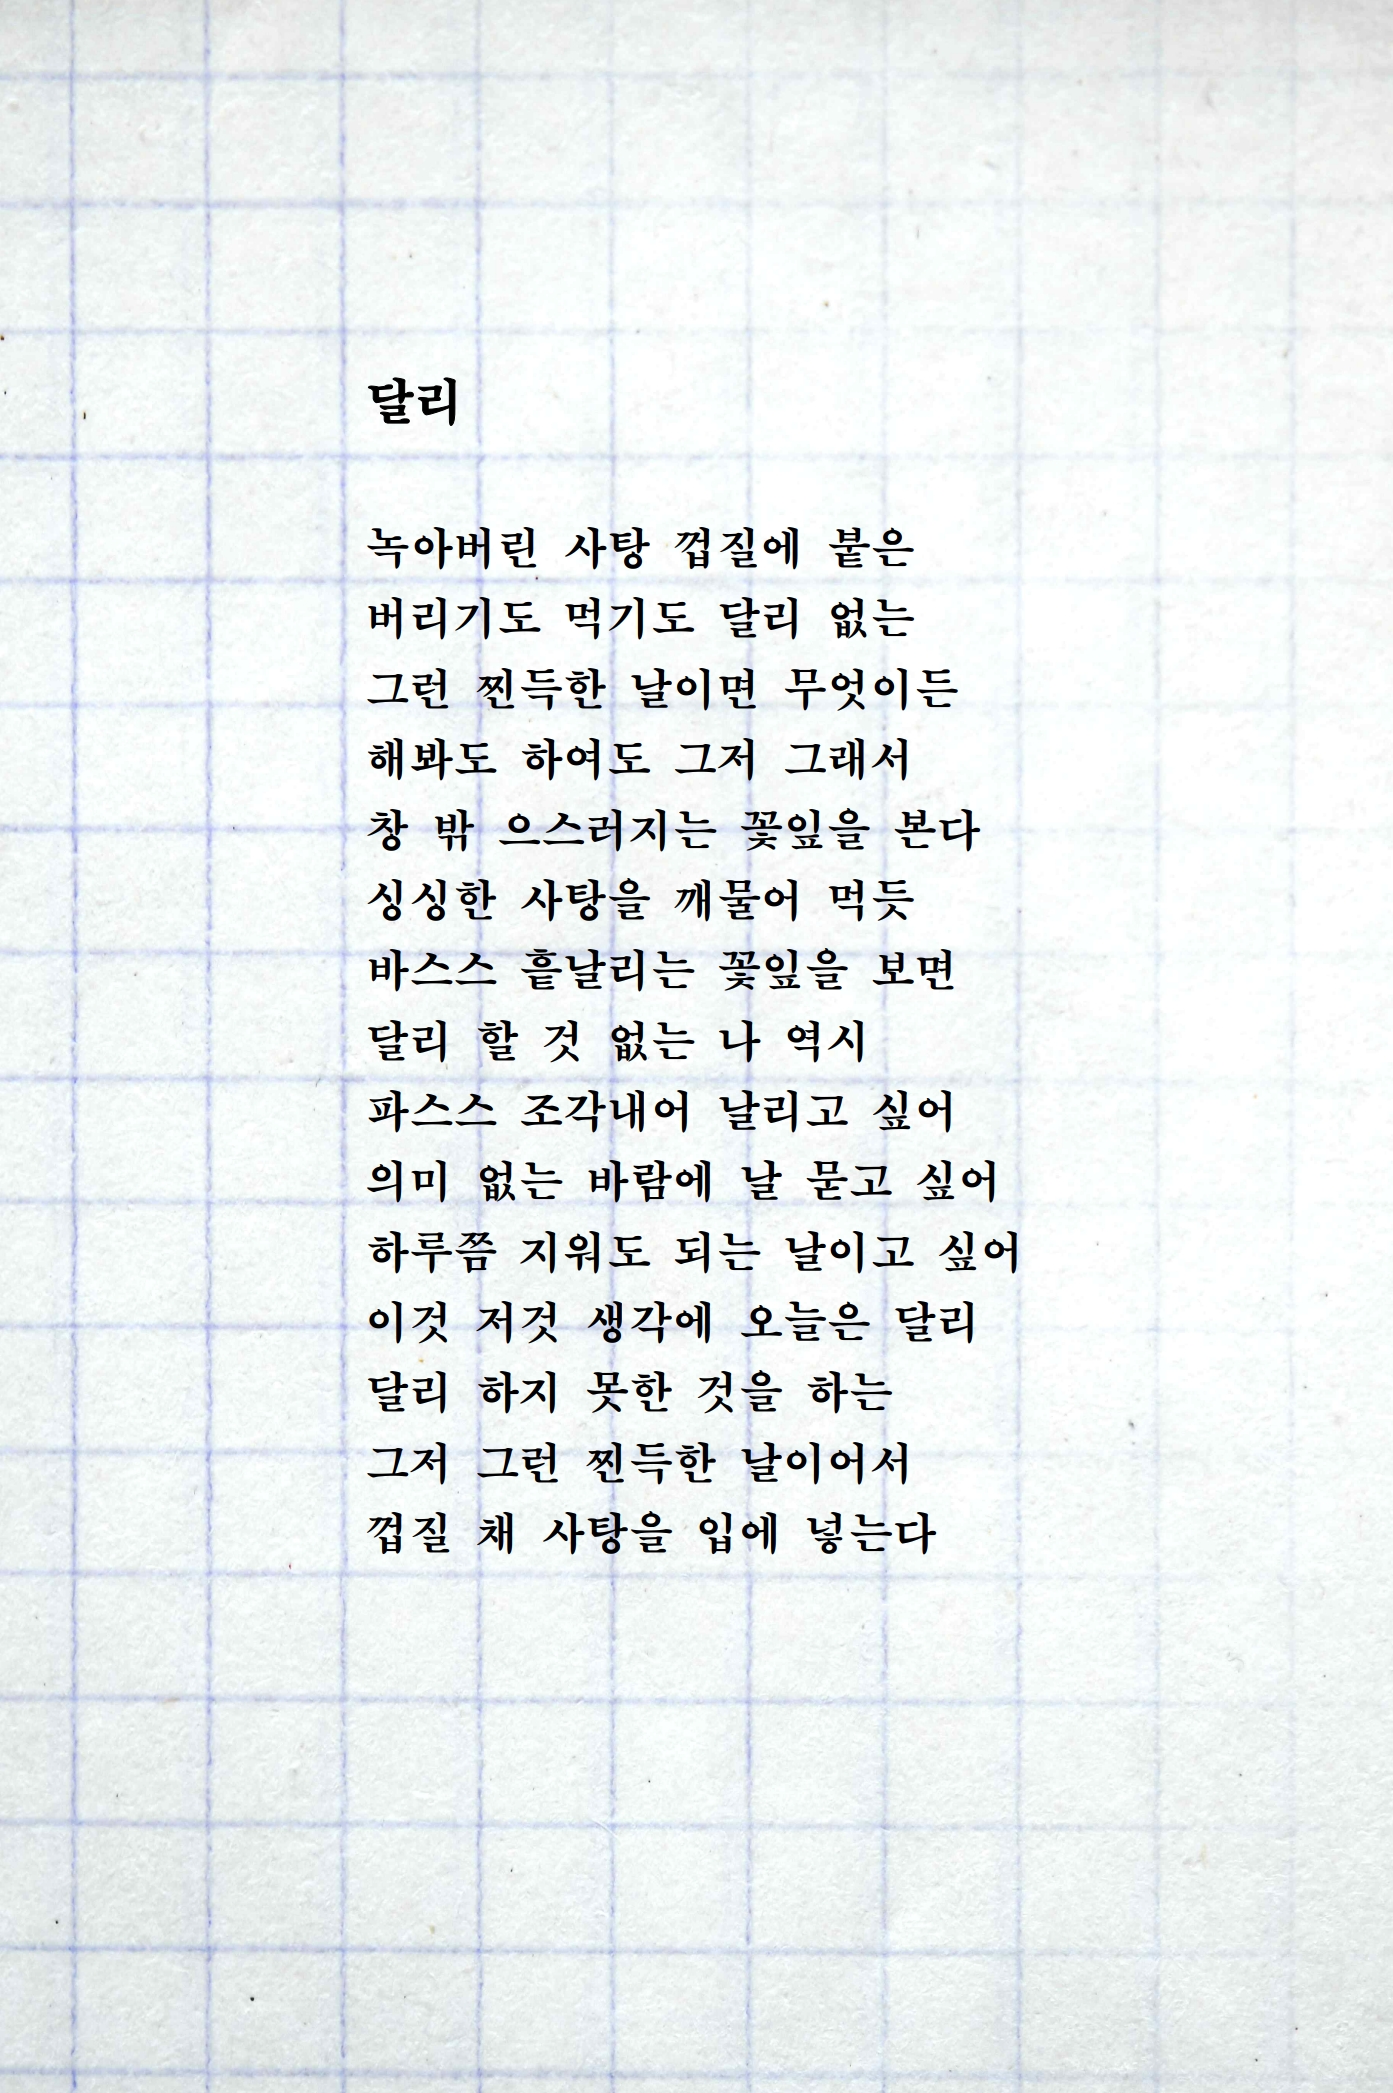 달리
녹아버린 사탕 껍질에 붙은
버리기도 먹기도 달리 없는
그런 찐득한 날이면 무엇이든
해봐도 하여도 그저 그래서
창 밖 으스러지는 꽃잎을 본다
싱싱한 사탕을 깨물어 먹듯
바스스 흩날리는 꽃잎을 보면
달리 할 것 없는 나 역시
파스스 조각내어 날리고 싶어
의미 없는 바람에 날 묻고 싶어
하루쯤 지워도 되는 날이고 싶어
이것 저것 생각에 오늘은 달리
달리 하지 못한 것을 하는
그저 그런 찐득한 날이어서
껍질 채 사탕을 입에 넣는다